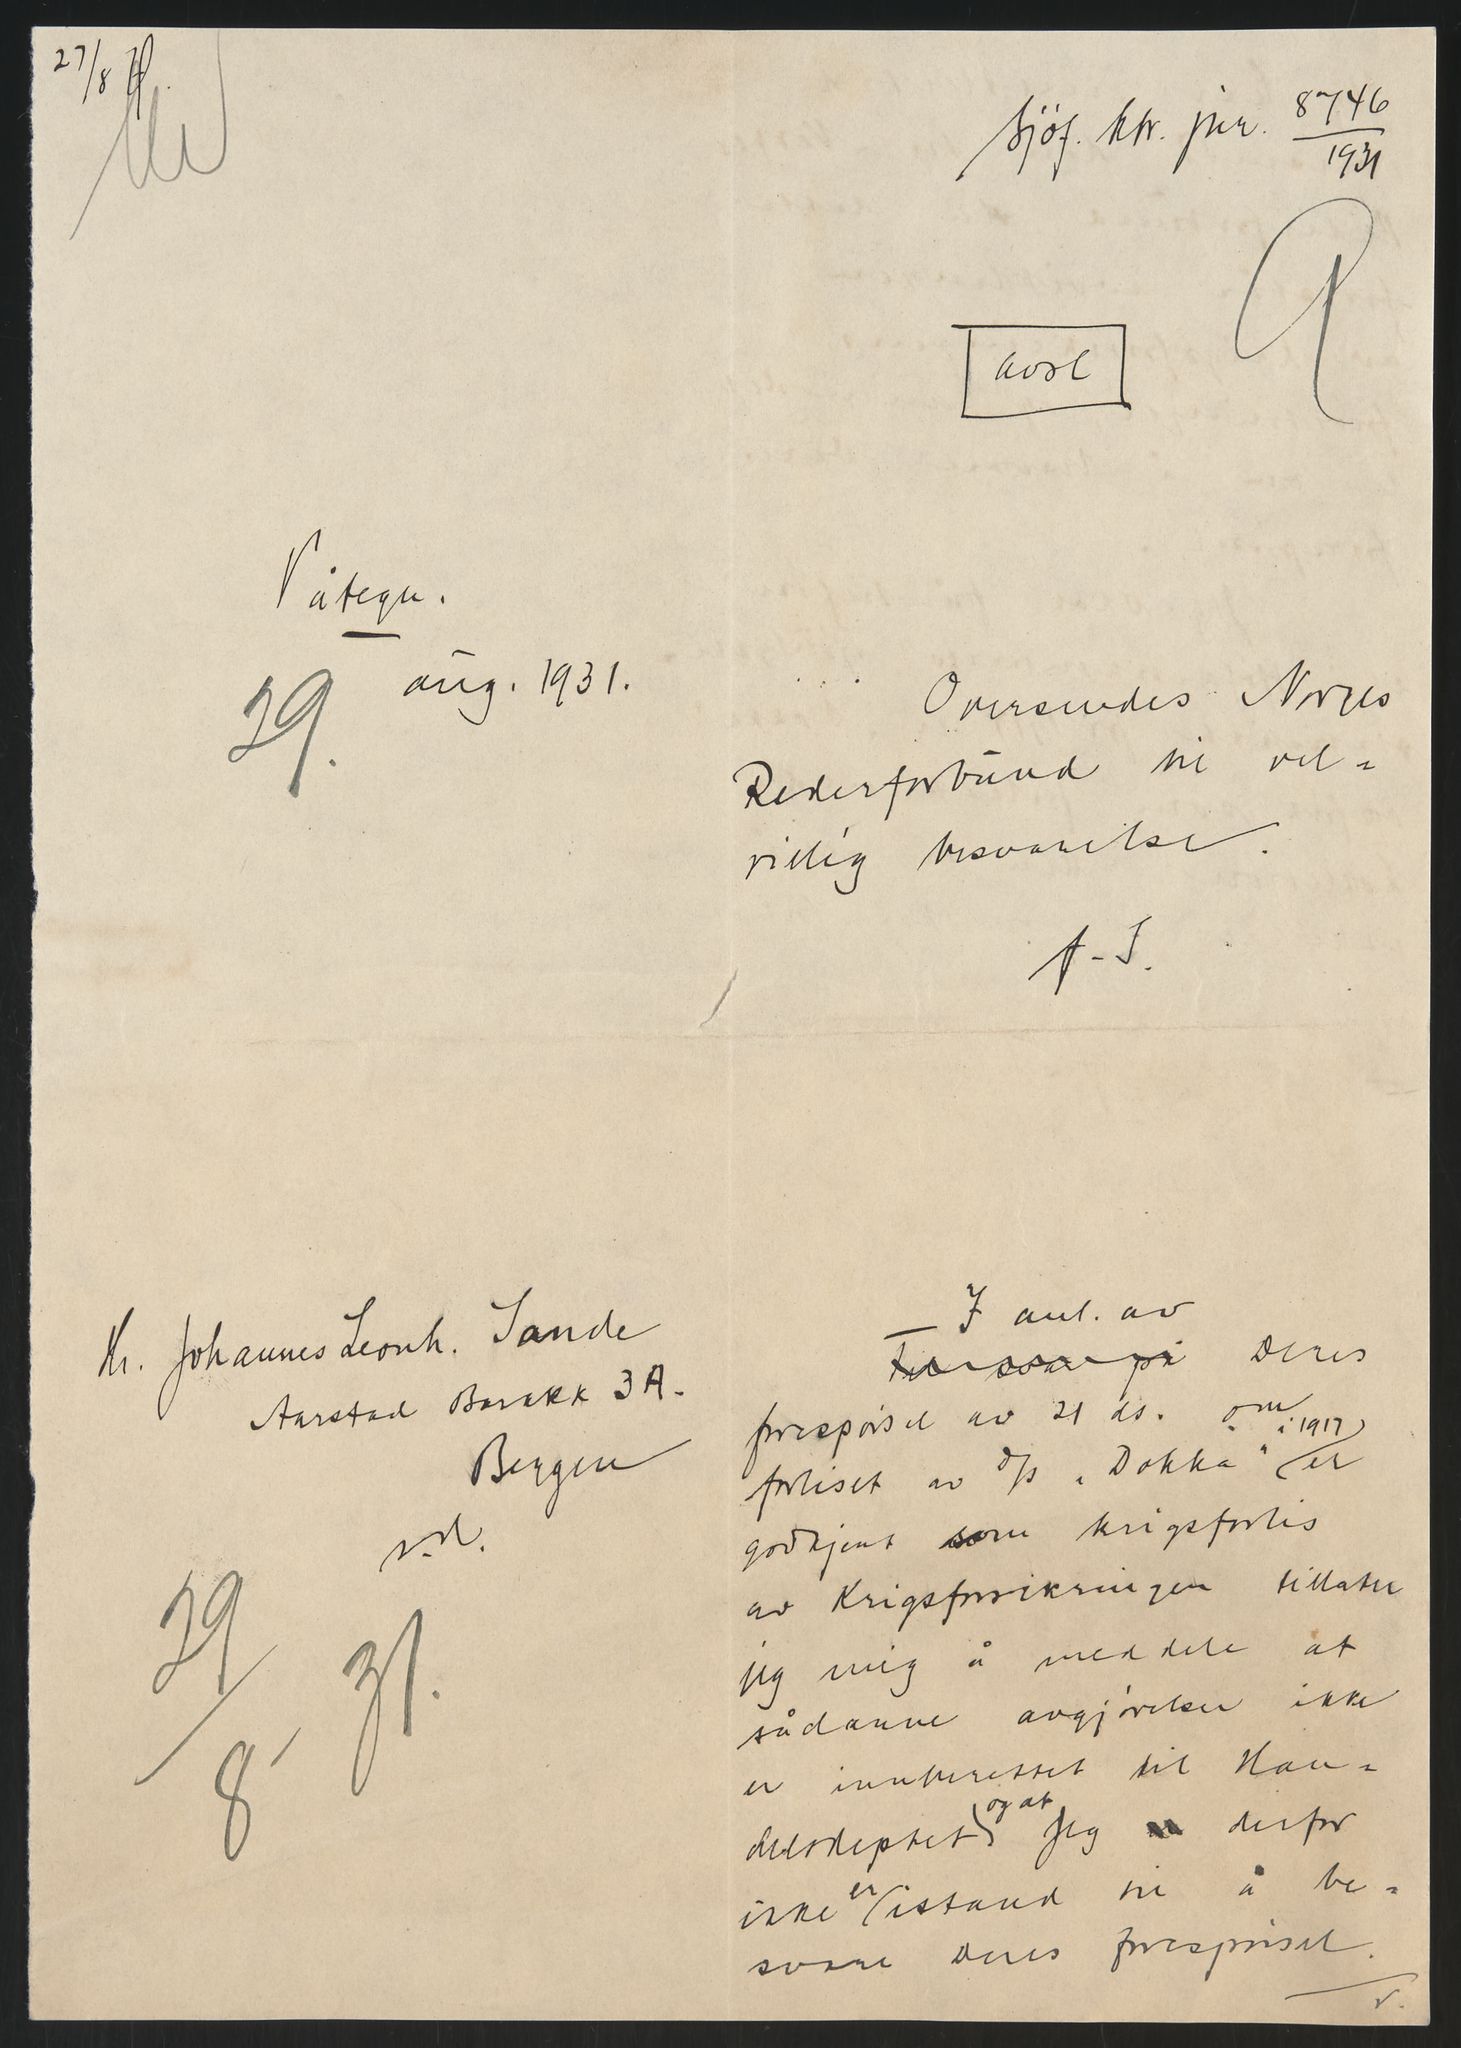 27/8
Sjöf. ktr. jnr. 8746
1931
avsl
Påtegn.
29. aug. 1931.
Oversendes Norges
Rederforbund til vel-
villig besvarelse.
A-S.
Hr. Johannes Leonh. Sande
Aarstad Barakk 3A.
Bergen
29/8 31.
I anl. av
Til svar på Deres
forespørsel av 21 ds. om
forliset av d/s "Dokka" i 1917 er
godkjent som krigsforlis
av Krigsforsikringen tillater
jeg mig å meddele at
sådanne avgjørelser ikke
er innberettet til Han-
delsdeptet og at jeg derfor
ikke er istand til å be-
svare Deres forespørsel.